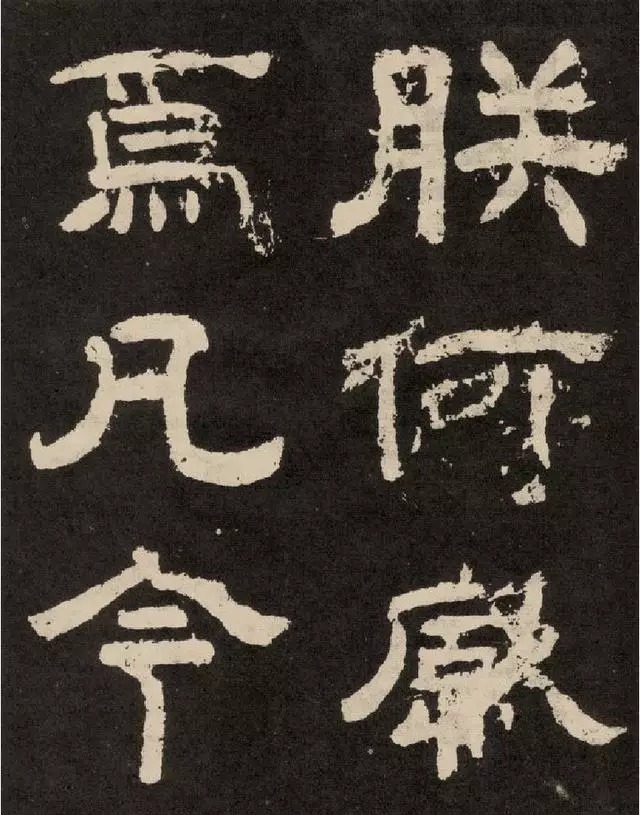 朕何
焉凡今